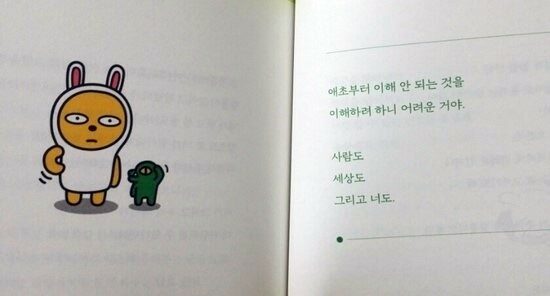 애초부터 이해 안 되는 것을
이해하려 하니 어려운 거야.
사람도
세상도
그리고 너도.